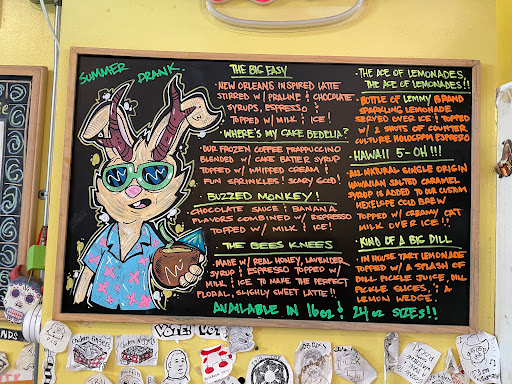 SUMMER DRANK
THE BIG EASY
• NEW ORLEANS INSPIRED LATTE
STIRRED W/ PRALINE & CHOCOLATE
SYRUPS, ESPRESSO &
TOPPED W/ MILK & ICE!
• WHERE'S MY CAKE BEDELIA?
• OUR FROZEN COFFEE FRAPPUCCINO
BLENDED W/ CAKE BATTER SYRUP
TOPPED W/ WHIPPED CREAM &
FUN SPRINKLES! SCARY GOOD!
BUZZED MONKEY!
CHOCOLATE SAUCE & BANANA
FLAVORS COMBINED W/ ESPRESSO
TOPPED W/ MILK & ICE!
THE BEES KNEES
• MADE W/ REAL HONEY, LAVENDER
SYRUP & ESPRESSO TOPPED W/
MILK & ICE TO MAKE THE PERFECT
FLORAL, SLIGHLY SWEET LATTE!!
• THE ACE OF LEMONADES,
THE ACE OF LEMONADES!!
BOTTLE OF LEMMY BRAND
SPARKLING LEMONADE
SERVED OVER ICE & TOPPED
W/ 2 SHOTS OF COUNTER
CULTURE HOLOGRAM ESPRESSO
HAWAII 5-OH!!!
ALL NATURAL SINGLE ORIGIN
HAWAIIAN SALTED CARAMEL
SYRUP IS ADDED TO OUR CUSTOM
JACKELOPE COLD BREW
TOPPED W/ CREAMY OAT
MILK OVER ICE!!
KIND OF A BIG DILL
IN HOUSE TART LEMONADE
TOPPED W/ A SPLASH OF
DILL PICKLE JUICE, DILL
PICKLE SLICES, & A
LEMON WEDGE.
AVAILABLE IN 16oz & 24oz SIZES!!
VOTE!